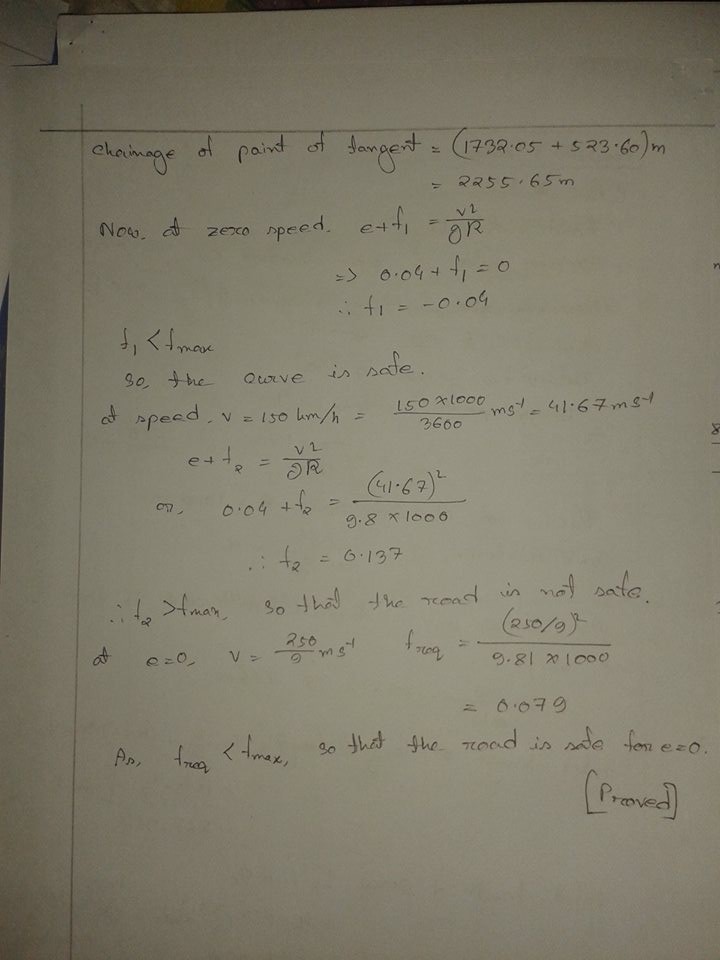 chainage of point of tangent = (1732.05 + 523.60)m
= 2255.65m
Now, at zero speed. e+f₁ = v²/gR
=> 0.04 + f₁ = 0
∴ f₁ = -0.04
f₁ < fmax
So, the curve is safe.
at speed, v = 150 km/h = 150×1000/3600 ms⁻¹ = 41.67 ms⁻¹
e+f₂ = v²/gR
or, 0.04 + f₂ = (41.67)²/9.8×1000
∴ f₂ = 0.137
∴ f₂ > fmax, so that the road is not safe.
at e=0, v = 250/9 ms⁻¹ freq = (250/9)²/9.81×1000
= 0.079
As, freq < fmax, so that the road is safe for e=0.
[Proved]